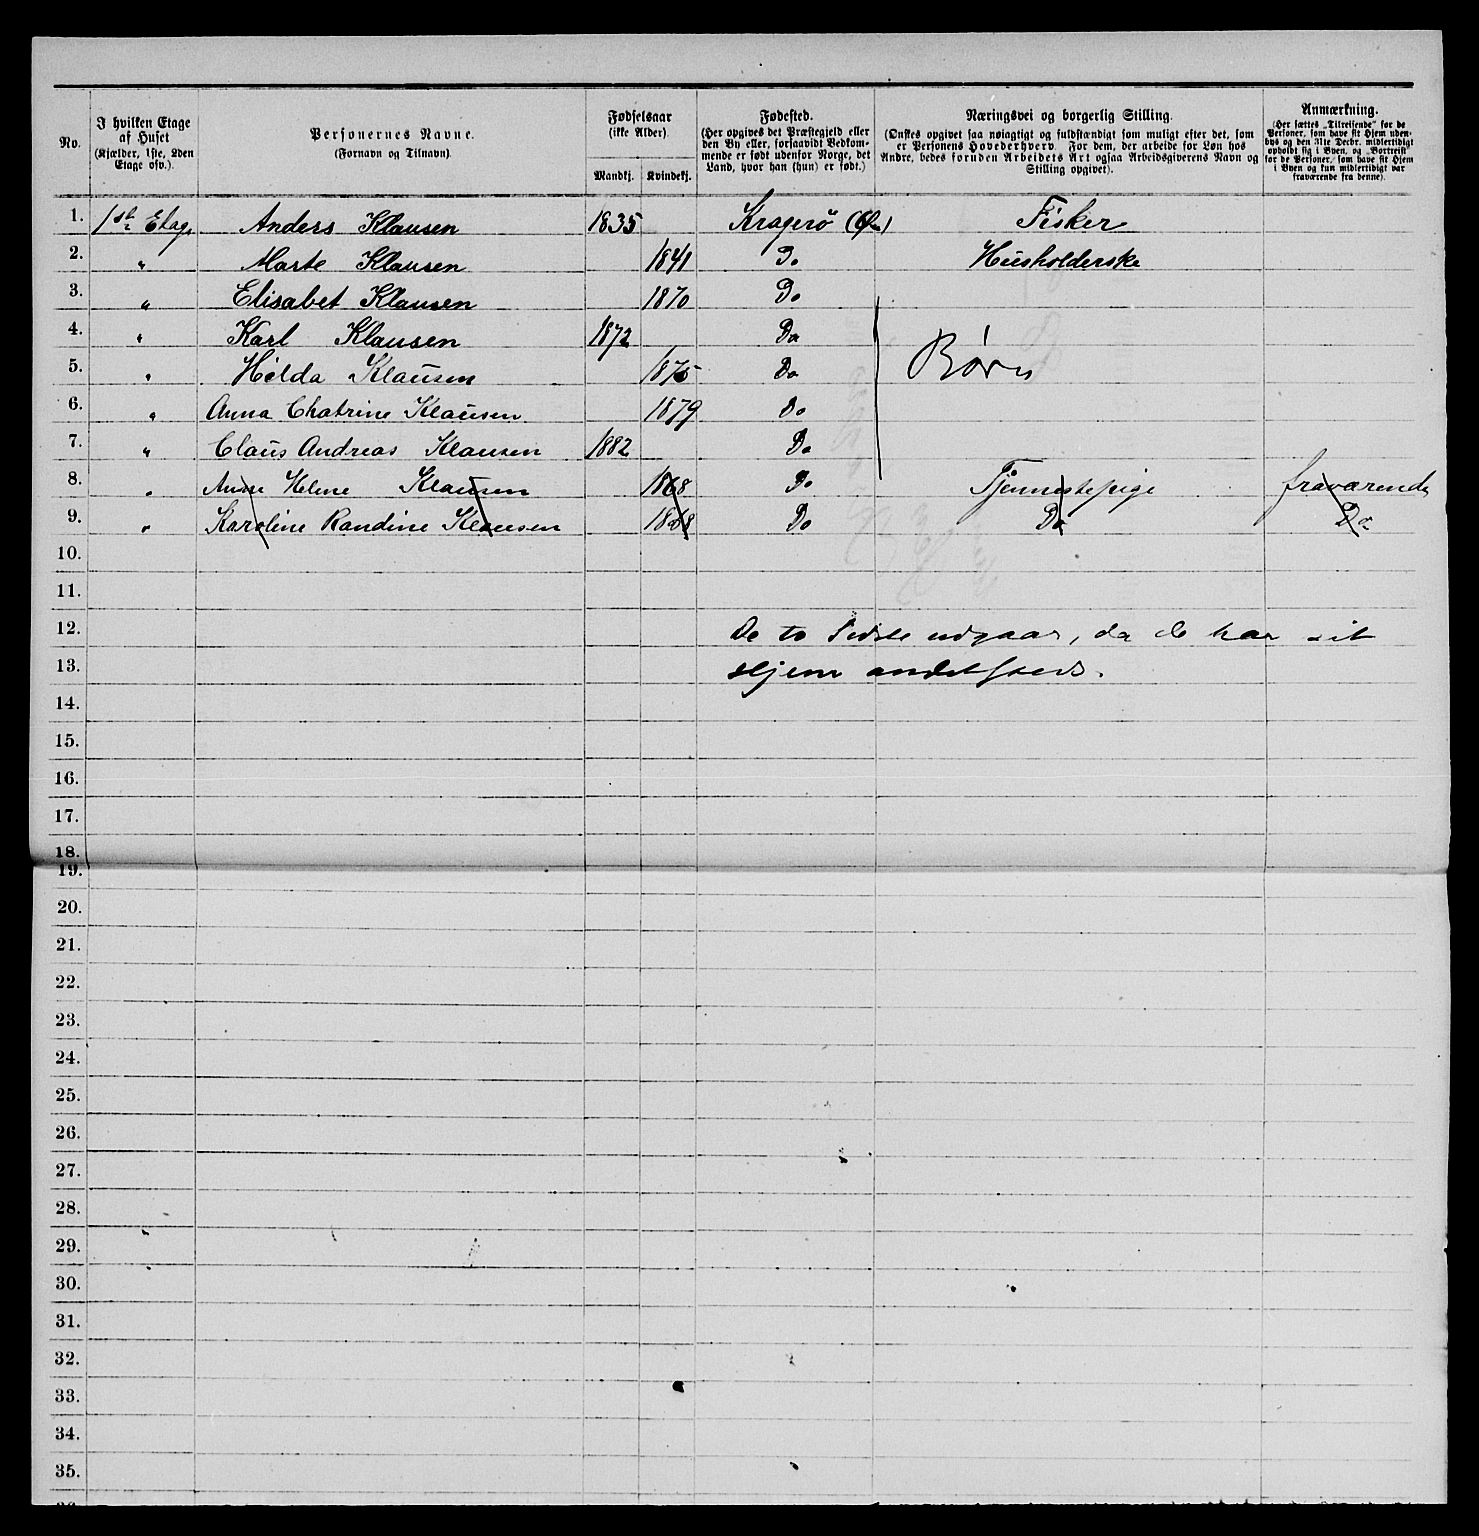 No.
I hvilken Etage
af Huset
(Kjælder, 1ste, 2den
Etage osv.).
Personernes Navne.
(Fornavn og Tilnavn).
Fødselsaar
(ikke Alder).
Mandkj. Kvindekj.
Fødested.
(Her opgives det Præstegjeld eller
den By eller, forsaavidt Vedkom-
mende er født udenfor Norge, det
Land, hvor han (hun) er født.)
Næringsvei og borgerlig Stilling.
(Ønskes opgivet saa nøiagtigt og fuldstændigt som muligt efter det, som
er Personens Hovederhverv. For dem, der arbeide for Løn hos
Andre, bedes foruden Arbeidets Art ogsaa Arbeidsgiverens Navn og
Stilling opgivet).
Anmærkning.
(Her sættes „Tilreisende" for de
Personer, som have sit Hjem uden-
bys og den 31te Decbr. midlertidigt
opholdt sig i Byen, og „Bortreist"
for de Personer, som have sit Hjem
i Byen og kun midlertidigt var
fraværende fra denne).
1. 1ste Etage Anders Klausen 1835 Kragerö Fisker
2. " Marte Klausen 1841 Do Husholderske
3. " Elisabet Klausen 1870 Do
4. " Karl Klausen 1872 Do
5. " Hilda Klausen 1875 Do Børn
6. " Anna Chatrine Klausen 1879 Do
7. " Claus Andreas Klausen 1882 Do
8. " Anne Helene Klausen 1868 Do Tjenestepige fraværende
9. " Karoline Randine Klausen 1868 Do Do Do
10.
11.
12. De to sidste udgaar, da de har sit
13. Hjem andetsteds.
14.
15.
16.
17.
18.
19.
20.
21.
22.
23.
24.
25.
26.
27.
28.
29.
30.
31.
32.
33.
34.
35.